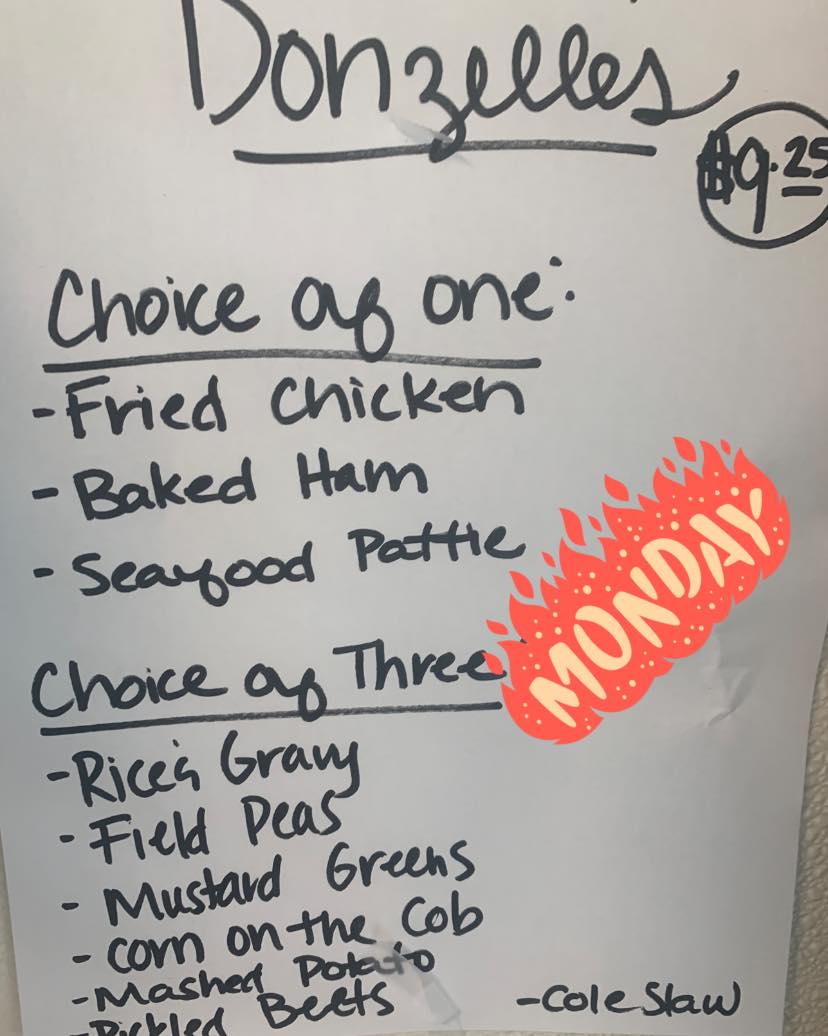 Donzelles
$9.25
Choice of one:
- Fried Chicken
- Baked Ham
- Seafood Pattie
MONDAY
Choice of Three
- Rice & Gravy
- Field Peas
- Mustard Greens
- Corn on the Cob
- Mashed Potato
- Pickled Beets
- Cole Slaw